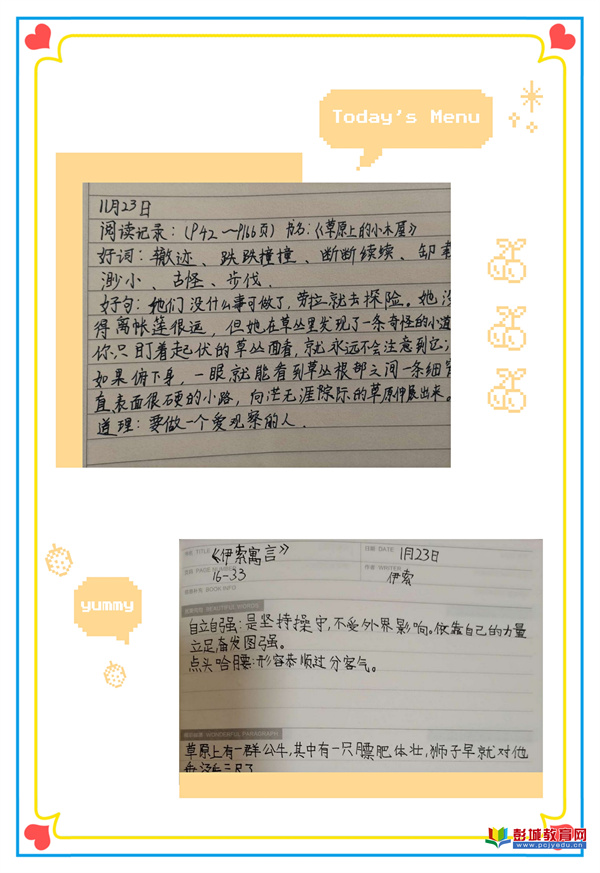 Today's Menu
11月23日
阅读记录：(P42～P166页) 书名：《草原上的小木屋》
好词：辙迹、跌跌撞撞、断断续续、卸载
渺小、古怪、步伐.
好句：她们没什么事可做了,劳拉就去探险。她没
得离帐篷很远，但她在草丛里发现了一条奇怪的小道
你只盯着起伏的草丛面看,就永远不会注意到它;
如果俯下身，一眼就能看到草丛根部之间一条细窄
直表面很硬的小路，向茫无涯际的草原伸展出来。
道理：要做一个爱观察的人.
yummy
TITLE 《伊索寓言》 日期 DATE 1月23日
PAGE NUMBER 16-33 作者 WRITER 伊索
BOOK INFO
BEAUTIFUL WORDS
自立自强：是坚持操守,不受外界影响。依靠自己的力量
立足奋发图强。
点头哈腰:形容恭顺过分客气。
WONDERFUL PARAGRAPH
草原上有一群公牛,其中有一只膘肥体壮,狮子早就对他
垂涎三尺了
彭城教育网
www.pcjyedu.cn